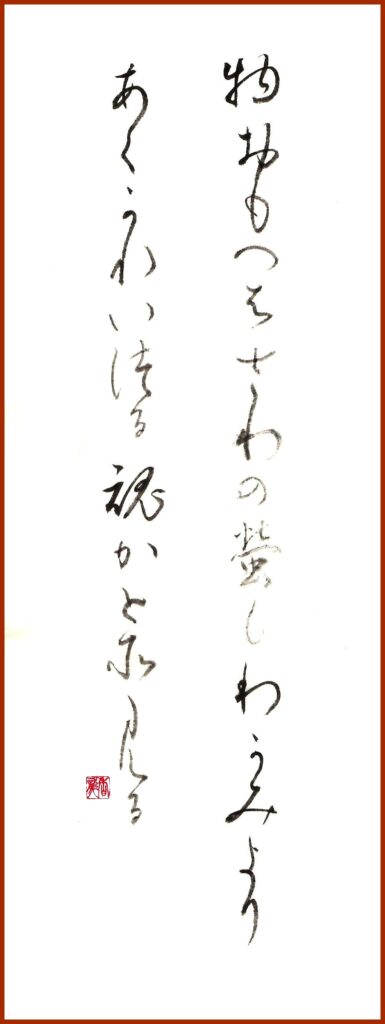 物おもへはさわの螢もわかみより
あくかれいつる魂かとそ見る